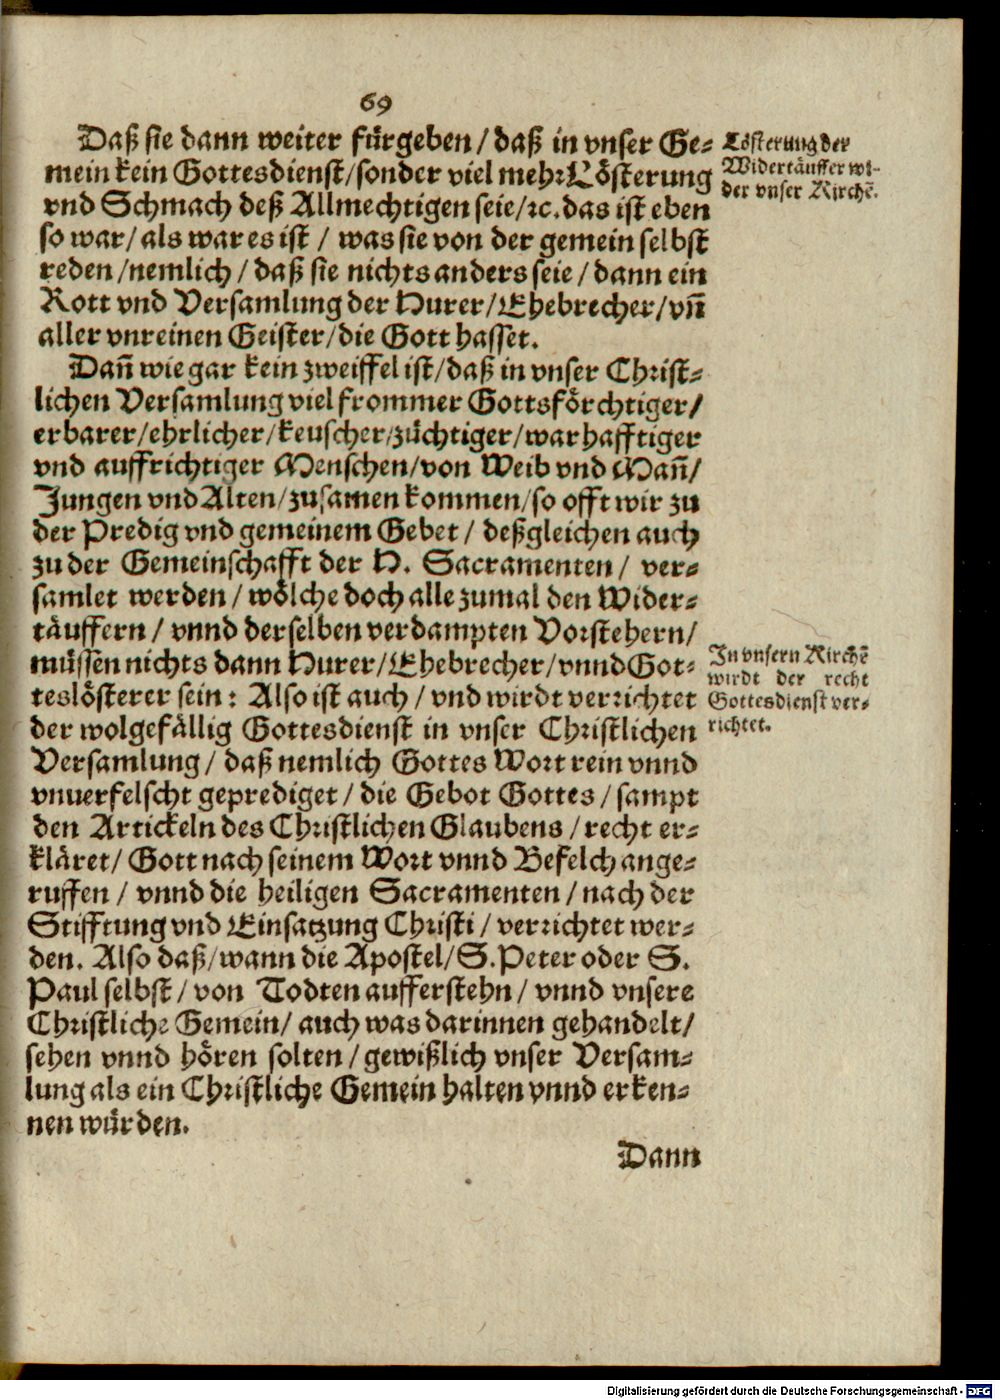 69
Daß sie dann weiter fürgeben / daß in vnser Ge-
mein kein Gottesdienst / sonder viel mehr Lösterung
vnd Schmach deß Allmechtigen seie / ꝛc. das ist eben
so war / als war es ist / was sie von der gemein selbst
reden / nemlich / daß sie nichts anders seie / dann ein
Rott vnd Versamlung der Hurer / Ehebrecher / vñ
aller vnreinen Geister / die Gott hasset.
Dañ wie gar kein zweiffel ist / daß in vnser Christ-
lichen Versamlung viel frommer Gottsförchtiger /
erbarer / ehrlicher / keuscher / züchtiger / warhafftiger
vnd auffrichtiger Menschen / von Weib vnd Mañ /
Jungen vnd Alten / zusamen kommen / so offt wir zu
der Predig vnd gemeinem Gebet / deßgleichen auch
zu der Gemeinschafft der H. Sacramenten / ver-
samlet werden / wölche doch alle zumal den Wider-
täuffern / vnnd derselben verdampten Vorstehern /
müssen nichts dann Hurer / Ehebrecher / vnnd Got-
teslösterer sein: Also ist auch / vnd wirdt verrichtet
der wolgefällig Gottesdienst in vnser Christlichen
Versamlung / daß nemlich Gottes Wort rein vnnd
vnuerfelscht geprediget / die Gebot Gottes / sampt
den Artickeln des Christlichen Glaubens / recht er-
kläret / Gott nach seinem Wort vnnd Befelch ange-
ruffen / vnnd die heiligen Sacramenten / nach der
Stifftung vnd Einsatzung Christi / verrichtet wer-
den. Also daß / wann die Apostel / S. Peter oder S.
Paul selbst / von Todten aufferstehn / vnnd vnsere
Christliche Gemein / auch was darinnen gehandelt /
sehen vnnd hören solten / gewißlich vnser Versam-
lung als ein Christliche Gemein halten vnnd erken-
nen würden.
Dann
Lösterung der
Widertäuffer wi-
der vnser Kirchẽ.
In vnsern Kirchẽ
wirdt der recht
Gottesdienst ver-
richtet.
Digitalisierung gefördert durch die Deutsche Forschungsgemeinschaft - DFG